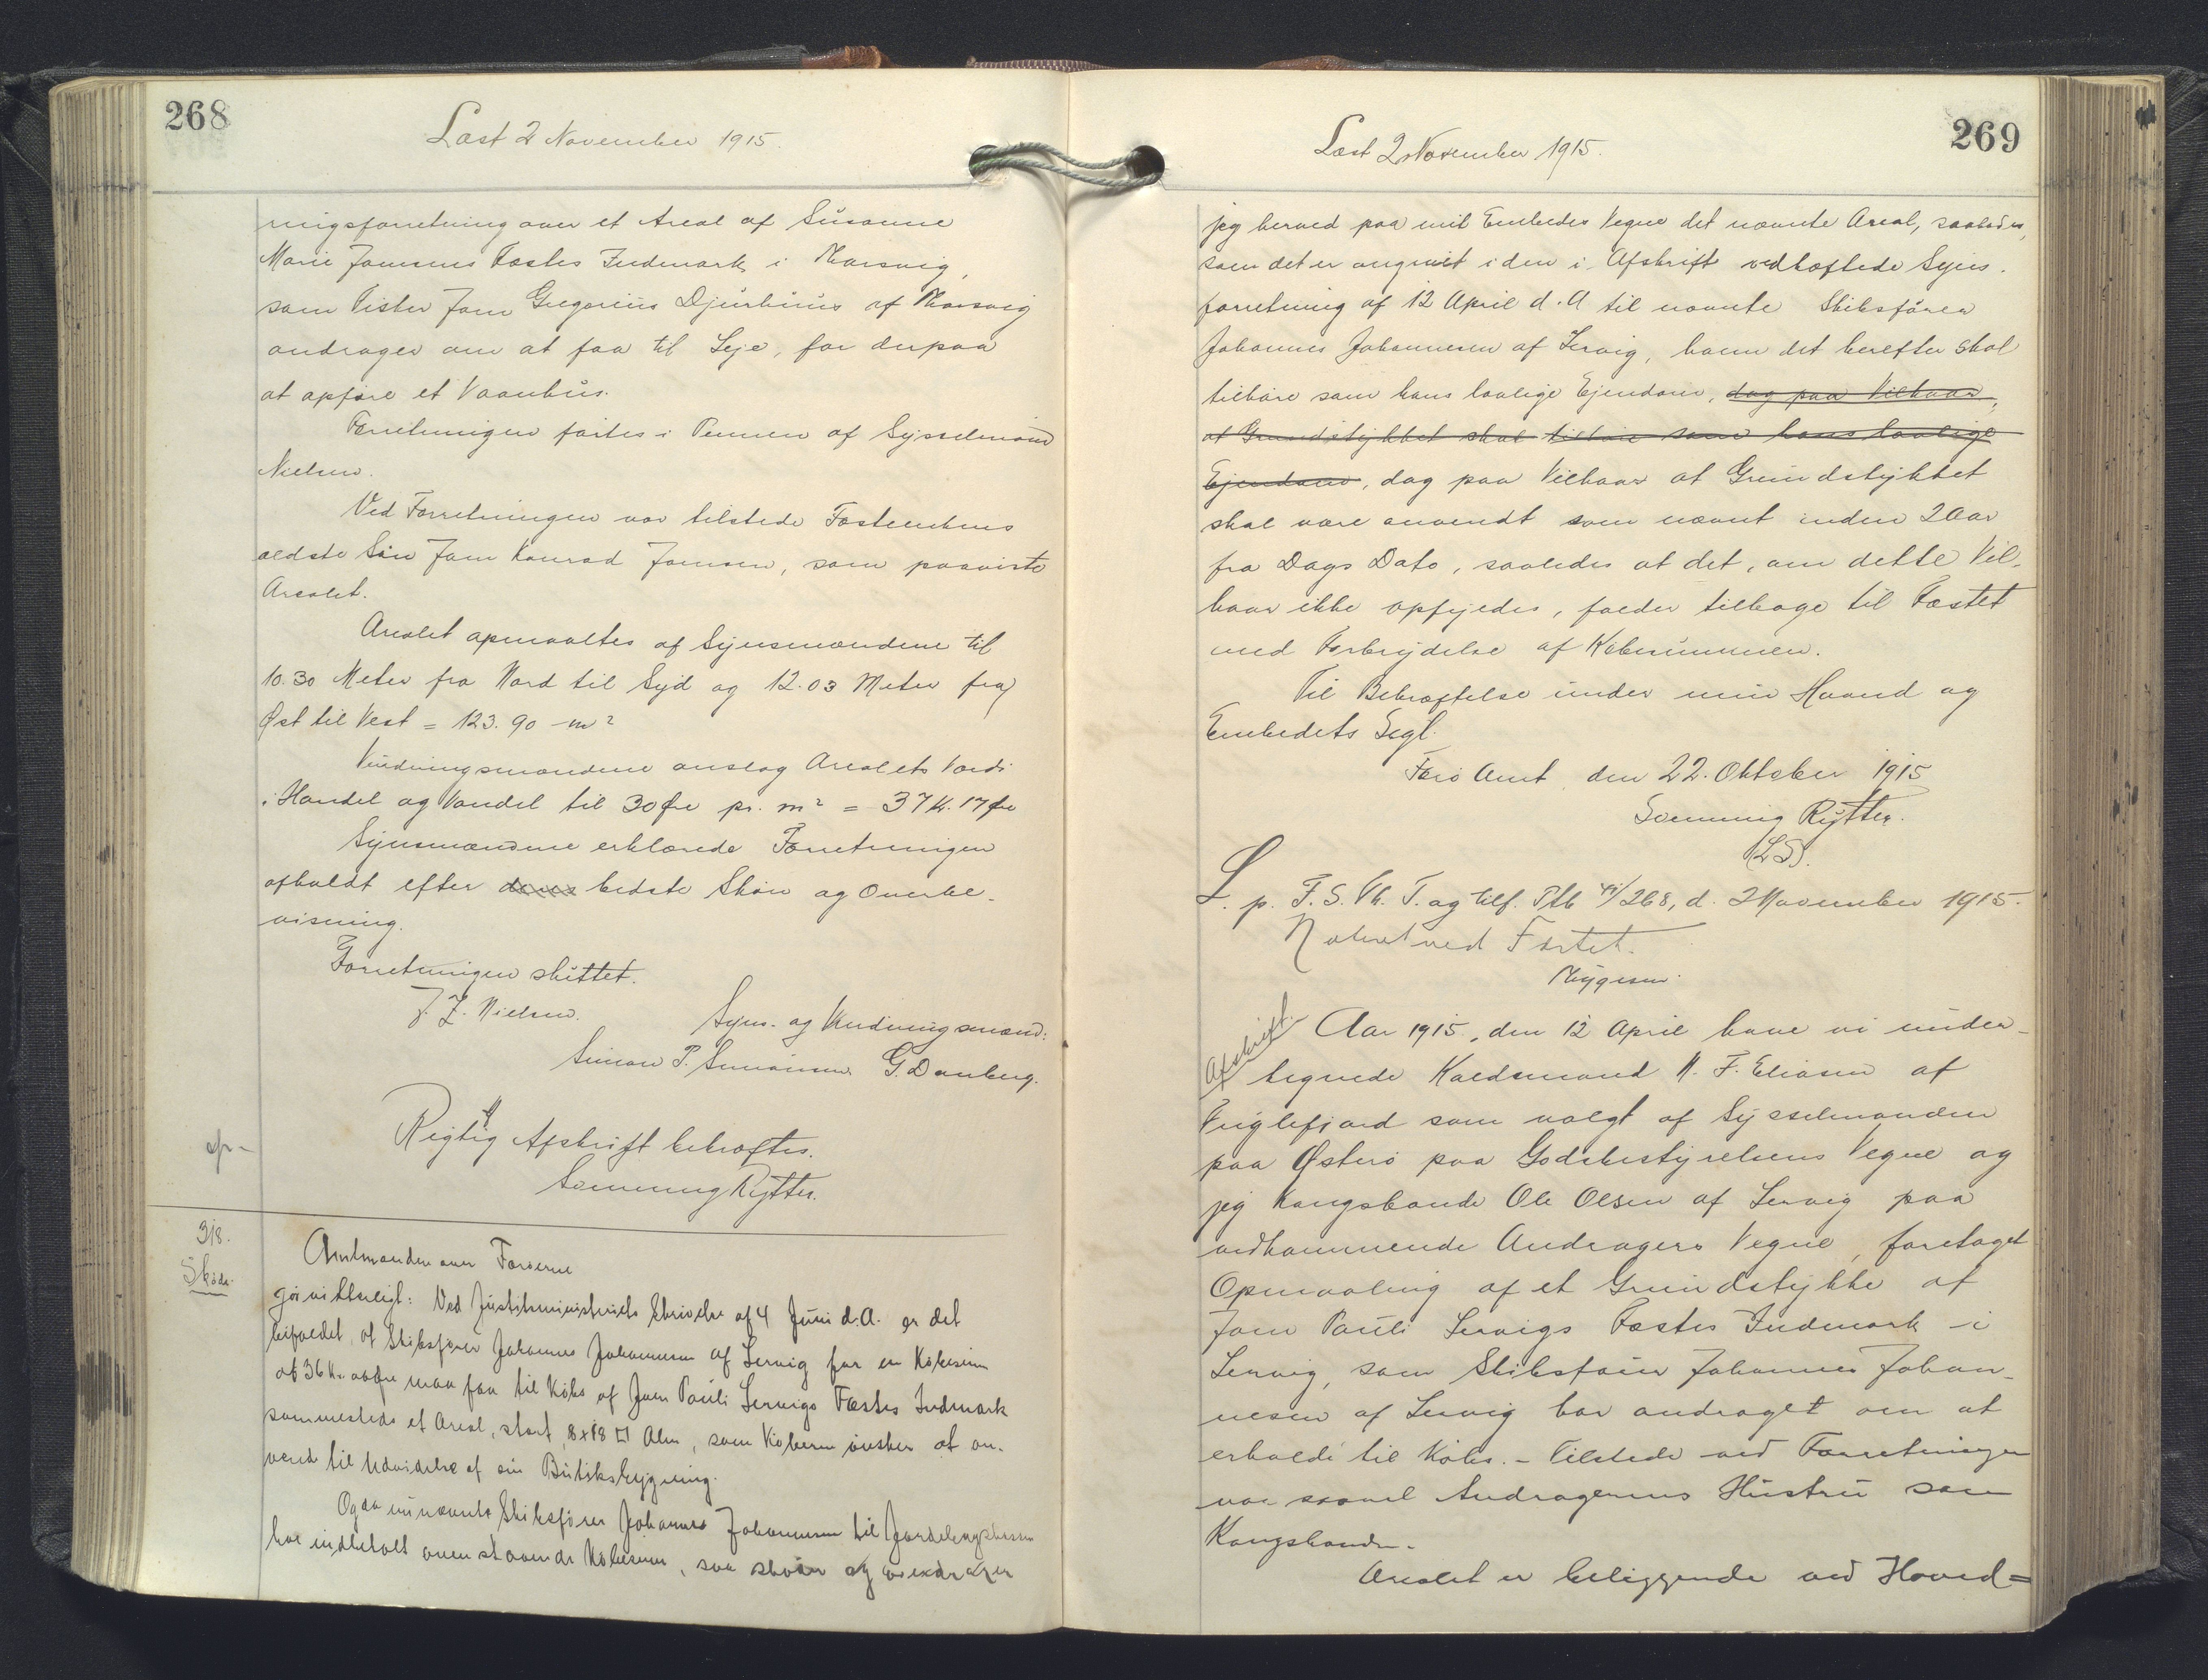 268
Læst 2 November 1915.
ningsforretning over et Areal af Susanne
Marie Joensens Fæstes Indmark i Norsvig,
som Fisker Joen Gregorius Djurhuus af Norsvig
andrager om at faa til Leje, for derpaa
at opføre et Vaanhus.
Forretningen førtes i Pennen af Sysselmand
Nielsen.
Ved Forretningen var tilstede Fæsteenkens
ældste Søn Joen Konrad Joensen, som paaviste
Arealet.
Arealet opmaaltes af Synsmændene til
10.30 Meter fra Nord til Syd og 12.03 Meter fra
Øst til Vest = 123.90 m²
Vurderingsmændene anslog Arealets Værdi
i Handel og Vandel til 30 Øre pr. m² = 37 Kr. 17 Øre
Synsmændene erklærede Forretningen
afholdt efter deres bedste Skøn og Overbe-
visning.
Forretningen sluttet.
J. J. Nielsen.
Syns- og Vurderingsmænd:
Simon P. G. Danberg.
Rigtig Afskrift bekræftes.
Svenning Rytter.
318.
Skøde.
Amtmanden over Færøerne
gør vitterligt: Ved Justitsministeriets Skrivelse af 4 Juni d.A. er det
bifaldet, at Skibsfører Johannes Johannesen af Lervig for en Købesum
af 36 Kr. 00 Øre maa faa til Købs af Joen Pauli Lervigs Fæstes Indmark
sammesteds et Areal, stort, 8x18 □ Alen, som Køberen ønsker at an-
vende til Udvidelse af sin Butiksbygning.
Og da nu nævnte Skibsfører Johannes Johannesen til Jordebogskassen
har indbetalt ovenstaaende Købesum, saa skøder og overdrager
269
Læst 2 November 1915.
jeg herved paa mit Embedes Vegne det nævnte Areal, saaledes,
som det er angivet i den i Afskrift vedhæftede Syns-
forretning af 12 April d.A til nævnte Skibsfører
Johannes Johannesen af Lervig, ham det herefter skal
tilhøre som hans lovlige Ejendom, dog paa Vilkaar,
at Grundstykket skal tilhøre som hans lovlige
Ejendom, dog paa Vilkaar at Grundstykket
skal være anvendt som nævnt inden 2 Aar
fra Dags Dato, saaledes at det, om dette Vil-
kaar ikke opfyldes, falder tilbage til Fæstet
med Forbrydelse af Købesummen.
Til Bekræftelse under min Haand og
Embedets Segl.
Færø Amt, den 22. Oktober 1915
Svenning Rytter.
(L.S).
L. p. F. S. Th. T. og tilf. Ptb 41/268, d. 2 November 1915.
Noteret ved Fæstet.
Afskrift.
Aar 1915, den 12 April have vi under-
tegnede Kaldsmand M. F. Eliasen af
Fuglefjord som valgt af Sysselmanden
paa Østerø paa Godsbestyrelsens Vegne og
jeg Kongsbonde Ole Olsen af Lervig paa
vedkommende Andragers Vegne, foretaget
Opmaaling af et Grundstykke af
Joen Pauli Lervigs Fæstes Indmark i
Lervig, som Skibsfører Johannes Johan-
nesen af Lervig har andraget om at
erholde til Købs. - Tilstede ved Forretningen
var saavel Andragerens Hustru som
Kongsbonden.
Arealet er beliggende ved Hoved=